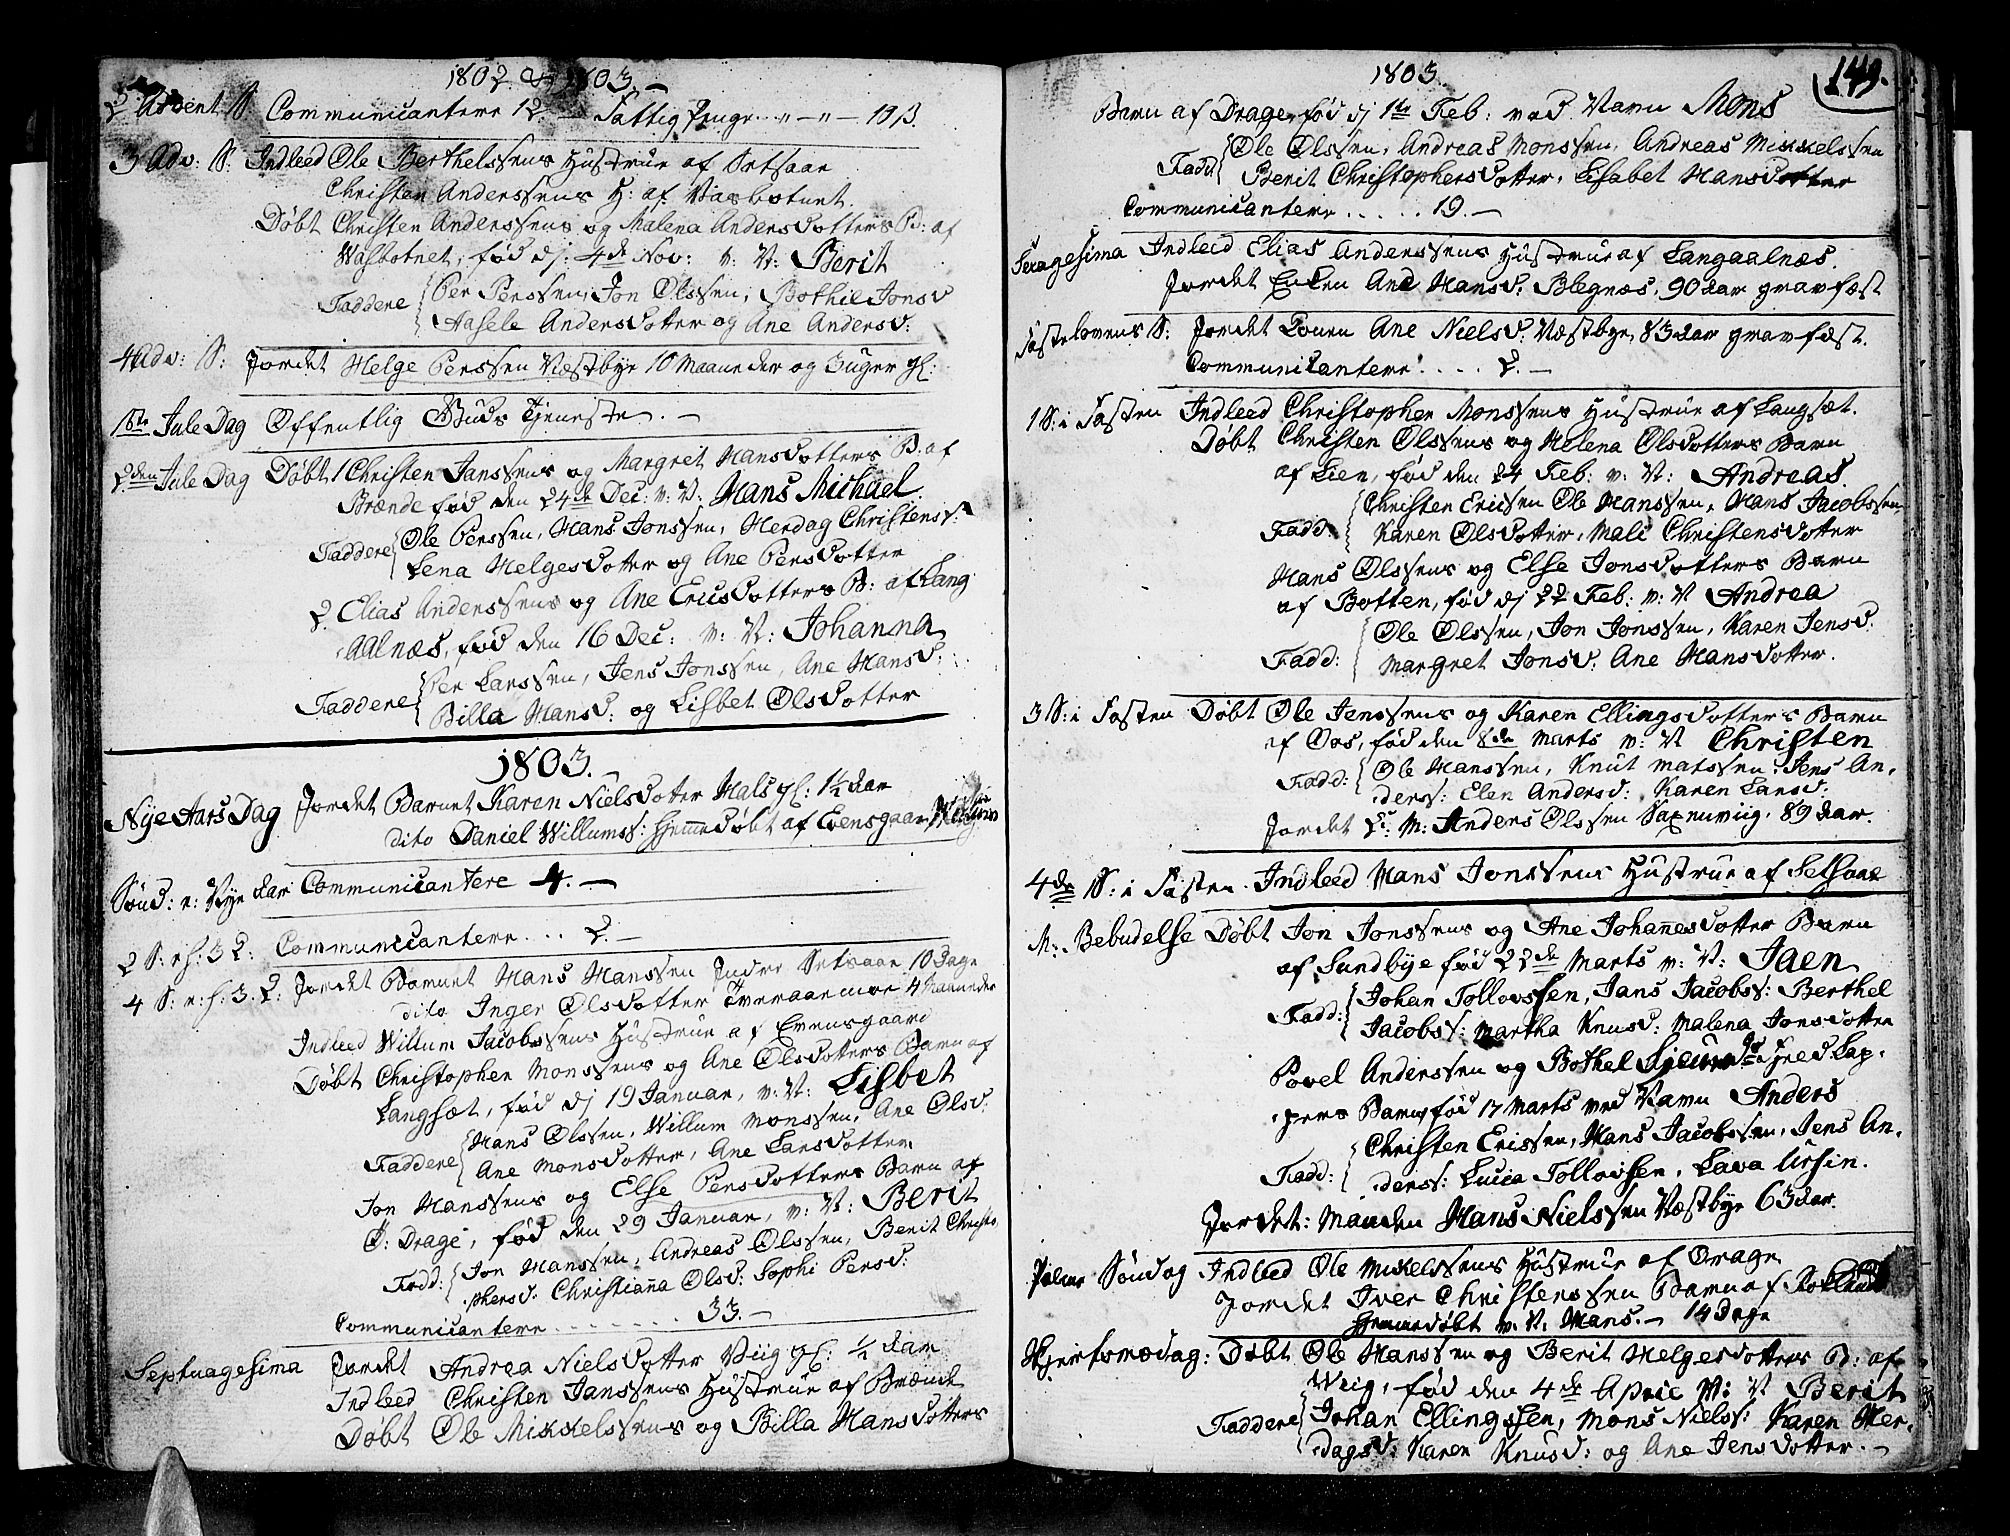 1802 og 1803.
2 Advent S Communicantere 12 Fattig Penge .. " - " - 19 β.
3 Adv: S: Indleed Ole Berthelssens Hustrue af Setsaae
Christen Anderssens H: af Vasbotnet.
Døbt Christen Anderssens og Malena Andersdotters B: af
Wasbotnet, fød dj: 4de Nov: v: N: Berit
Faddere Per Perssen, Jon Olssen, Bothil Jonsd
Aasele Andersdotter og Ane Andersd:
4 Adv: S: Jordet Helge Perssen Væstbye 10 Maaneder og 3 Uger gl:
1ste Jule Dag Offentlig Guds Tjeneste. -
2den Jule Dag Døbt 1 Christen Janssens og Margret Hansdotters B. af
Brænde fød den 24de Dec: v: N: Hans Michael.
Faddere Ole Perssen, Hans Jonssen, Herdag Christenss:
Lena Helgesdotter og Ane Persdotter
2. Elias Anderssens og Ane Ericsdotters B: af Lang
Aalnæs, fød den 16 Dec: v: N: Johanna
Faddere Per Larssen, Jens Jonssen, Ane Hansd:
Billa Hansd: og Lisbet Olsdotter
1803.
Nye Aars Dag Jordet Barnet Karen Nielsdotter Hals gl: 1½ Aar
dito Daniel Willumss: hjemmedøbt af Evensgaard
Sønd: e: Nye Aar Communicantere 4. -
2 S: e h: 3 K: Communicantere ... 2. -
4 S: e: h: 3. K: Jordet Barnet Hans Hanssen Indre Setsaae 10 Dage
dito Inger Olsdotter Tveraaemoe 4 Maaneder
Indleed Willum Jacobssens Hustrue af Evensgaard
Døbt Christopher Monssens og Ane Olsdotters Barn af
Langsæt, fød dj 19 Januar, v: N: Lisbet
Faddere Hans Olssen, Willum Monssen, Ane Olsd:
Ane Monsdotter, Ane Larsdotter
Jon Hanssens og Else Persdotters Barn af
Ø: Drage, fød den 29 Januar, v: N: Berit
Fadd: Jon Hanssen, Andreas Olssen, Berit Christo
phersd: Christianna Olsd: Sophi Persd:
Communicantere ....... 33. -
Septuagesima Jordet Andrea Nielsdotter Viig gl: ½ Aar
Indleed Christen Janssens Hustrue af Brænde
Døbt Ole Mikkelssens og Billa Hansdotters
1803.
149.
Barn af Drage, fød dj 1ste Feb: ved Navn Mons
Fadd: Ole Olssen, Andreas Monssen, Andreas Mikkelssen
Berit Christophersdotter, Lisabet Hansdotter
Communicantere ..... 19. -
Sexagesima Indleed Elias Anderssens Hustrue af Langaalnæs.
Jordet Enken Ane Hansd: Blegnæs, 90 Aar gravfæst
Fastelavens S: Jordet Konen Ane Nielsd: Væstbye, 83 Aar gravfæst.
Communicantere: .... 2. -
1 S: i Fasten Indleed Christopher Monssens Hustrue af Langsæt.
Døbt Christen Olssens og Helena Olsdotters Barn
af Lien, fød den 24 Feb: v: N: Andreas.
Fadd: Christen Ericsen Ole Hanssen, Hans Jacobssen
Karen Olsdotter, Mali Christensdotter
Hans Olssens og Else Jonsdotters Barn
af Botten, fød dj 22 Feb: v: N Andrea
Fadd: Ole Olssen, Jon Jonssen, Karen Jensd:
Margret Jonsd: Ane Hansdotter.
3 S: i Fasten Døbt Ole Jenssens og Karen Ellingsdotters Barn
af Oos, fød den 8de Marts v: N Christen
Fadd: Ole Hanssen, Knut Matssen, Jens An,
derss: Elen Andersd: Karen Larsd:
Jordet L: M: Anders Olssen Saxenviig, 89 Aar.
4de S: i Fasten Indleed Hans Jonssens Hustrue af Setsaae
M: Bebudelse Døbt Jon Jonssens og Ane Johannesdotter Barn
af Sundbye fød 22de Marts v: N: Jaen
Fadd: Johan Tollovssen, Jans Jacobss: Berthel
Jacobss: Martha Knusd: Malena Jonsdotter
Povel Anderssen og Bothel
Barn, fød 17 Marts ved Navn Anders
Fadd: Christen Erissen, Hans Jacobssen, Jens An,
derss: Lucia Tollovsen, Lava Ursin.
Jordet: Manden Hans Nielssen Væstbye 63 Aar.
Palme Søndag Indleed Ole Mikelssens Hustrue af Drage
Jordet Iver Christenssen Barn af
Hjemmedøbt v. N. Hans. - 14 Dage
Skjertsmædag: Døbt Ole Hanssen og Berit Helgesdotters B: af
Viig, fød den 4de April v: N Berit
Faddere Johan Ellingssen, Mons Nielss: Karen Her,
dagsd: Karen Knusd: og Ane Jensdotter. -